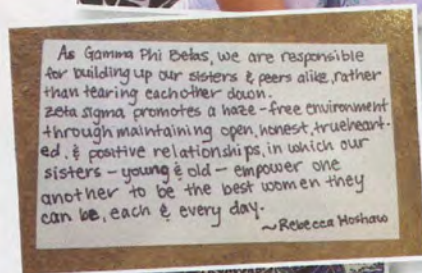 As Gamma Phi Betas, we are responsible
for building up our sisters & peers alike, rather
than tearing eachother down.
zeta sigma promotes a haze-free environment
through maintaining open, honest, trueheart-
ed, & positive relationships, in which our
sisters - young & old - empower one
another to be the best women they
can be, each & every day.
~Rebecca Moshaw